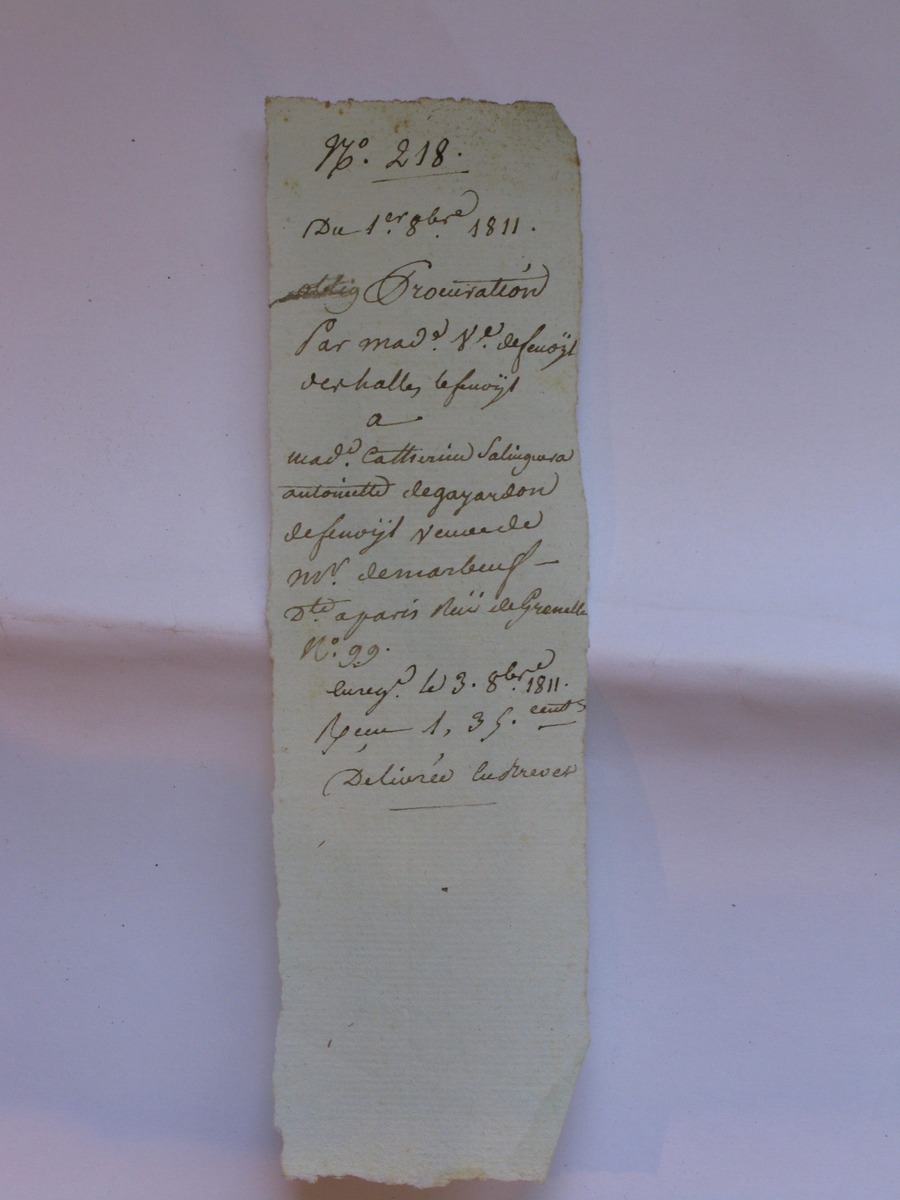 N.° 218.
Du 1.er 8bre 1811.
oblig Procuration
Par mad.e V.e defenoÿl
des halles, lefenoÿl
a
mad.e Catherine Salinguera
antoinette degayardon
defenoÿl veuve de
Mr. demarbeuf –
Dte aparis Rüe deGrenelle
N.° 99.
Enreg.é le 3. 8bre 1811.
Reçu 1, 35. cents
Délivrée En Brevet